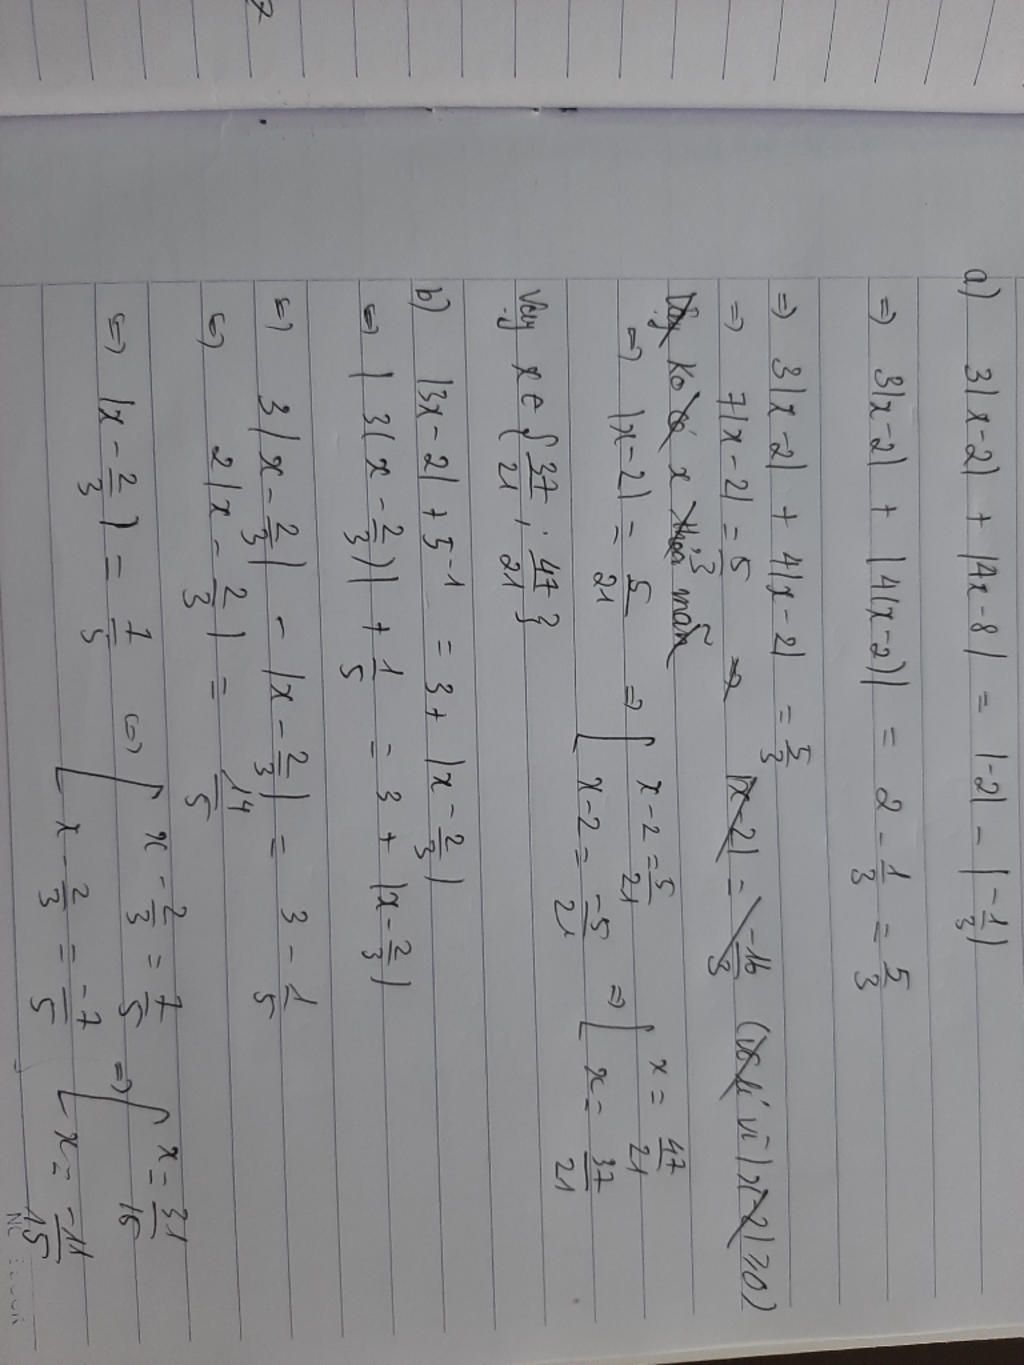 a) 3|x-2| + |4x-8| = |-2| - |-1/3|
=> 3|x-2| + |4(x-2)| = 2 - 1/3 = 5/3
=> 3|x-2| + 4|x-2| = 5/3
=> 7|x-2| = 5/3 => |x-2| = -16/3 (vô lí vì |x-2| ≥ 0)
Vậy ko có x thỏa mãn
=> |x-2| = 5/21 => [ x-2 = 5/21 => [ x = 47/21
x-2 = -5/21 x = 37/21
Vậy x ∈ { 37/21 ; 47/21 }
b) |3x-2| + 5^-1 = 3 + |x - 2/3|
<=> |3(x - 2/3)| + 1/5 = 3 + |x - 2/3|
<=> 3|x - 2/3| - |x - 2/3| = 3 - 1/5
<=> 2|x - 2/3| = 14/5
<=> |x - 2/3| = 7/5 <=> [ x - 2/3 = 7/5 => [ x = 31/15
x - 2/3 = -7/5 x = -11/15